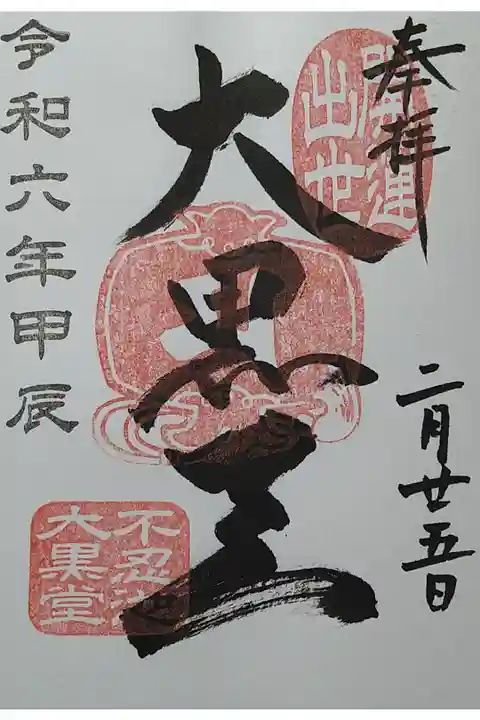 奉拝
二月廿五日
開運
出世
大黒天
令和六年甲辰
不忍池
大黒堂